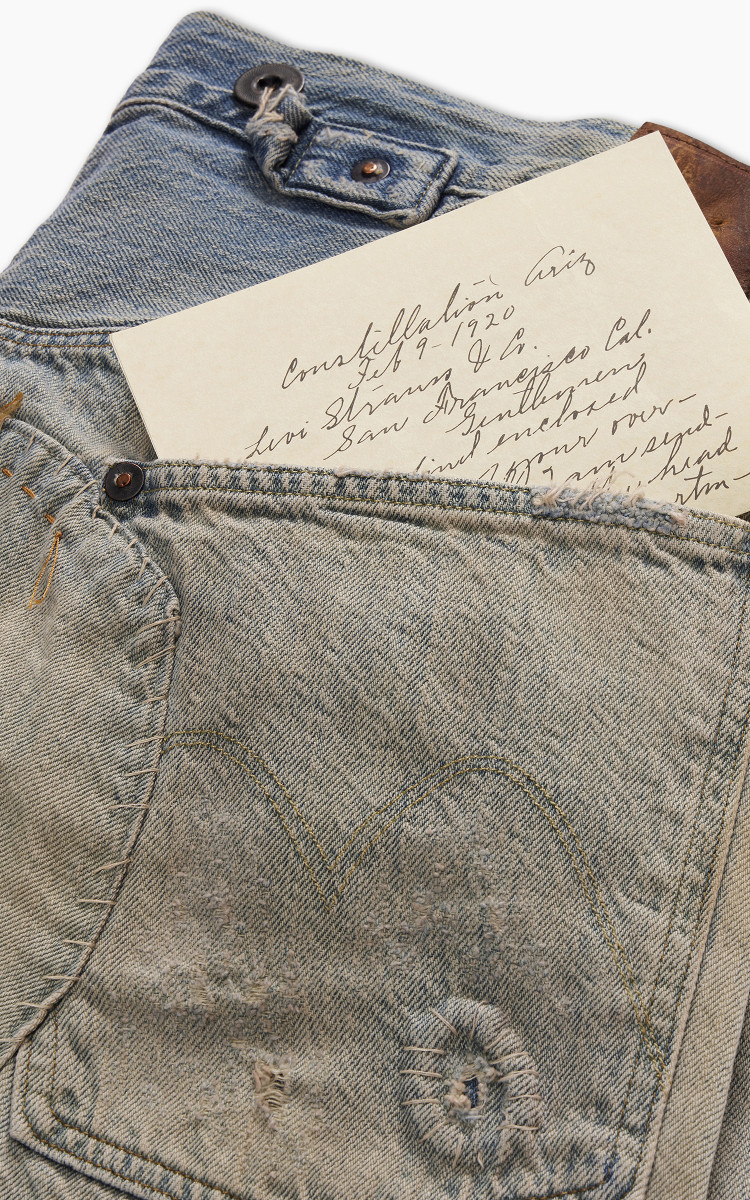 Constillation Ariz
Feb 9-1920
Levi Strauss & Co.
San Francisco Cal.
Gentlemen
find enclosed
your over-
I am send-
head
rtm-